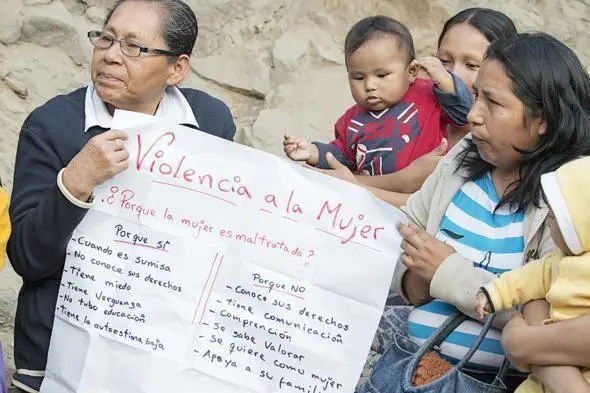 Violencia a la Mujer
¿Porque la mujer es maltratada?
Porque sí
- Cuando es sumisa
- No conoce sus derechos
- Tiene miedo
- Tiene Verguenza
- No tubo educación
- Tiene la autoestima baja
Porque NO
- Conoce sus derechos
- tiene comunicación
- Comprención
- Se sabe Valorar
- Se quiere como mujer
- Apoya a su famili